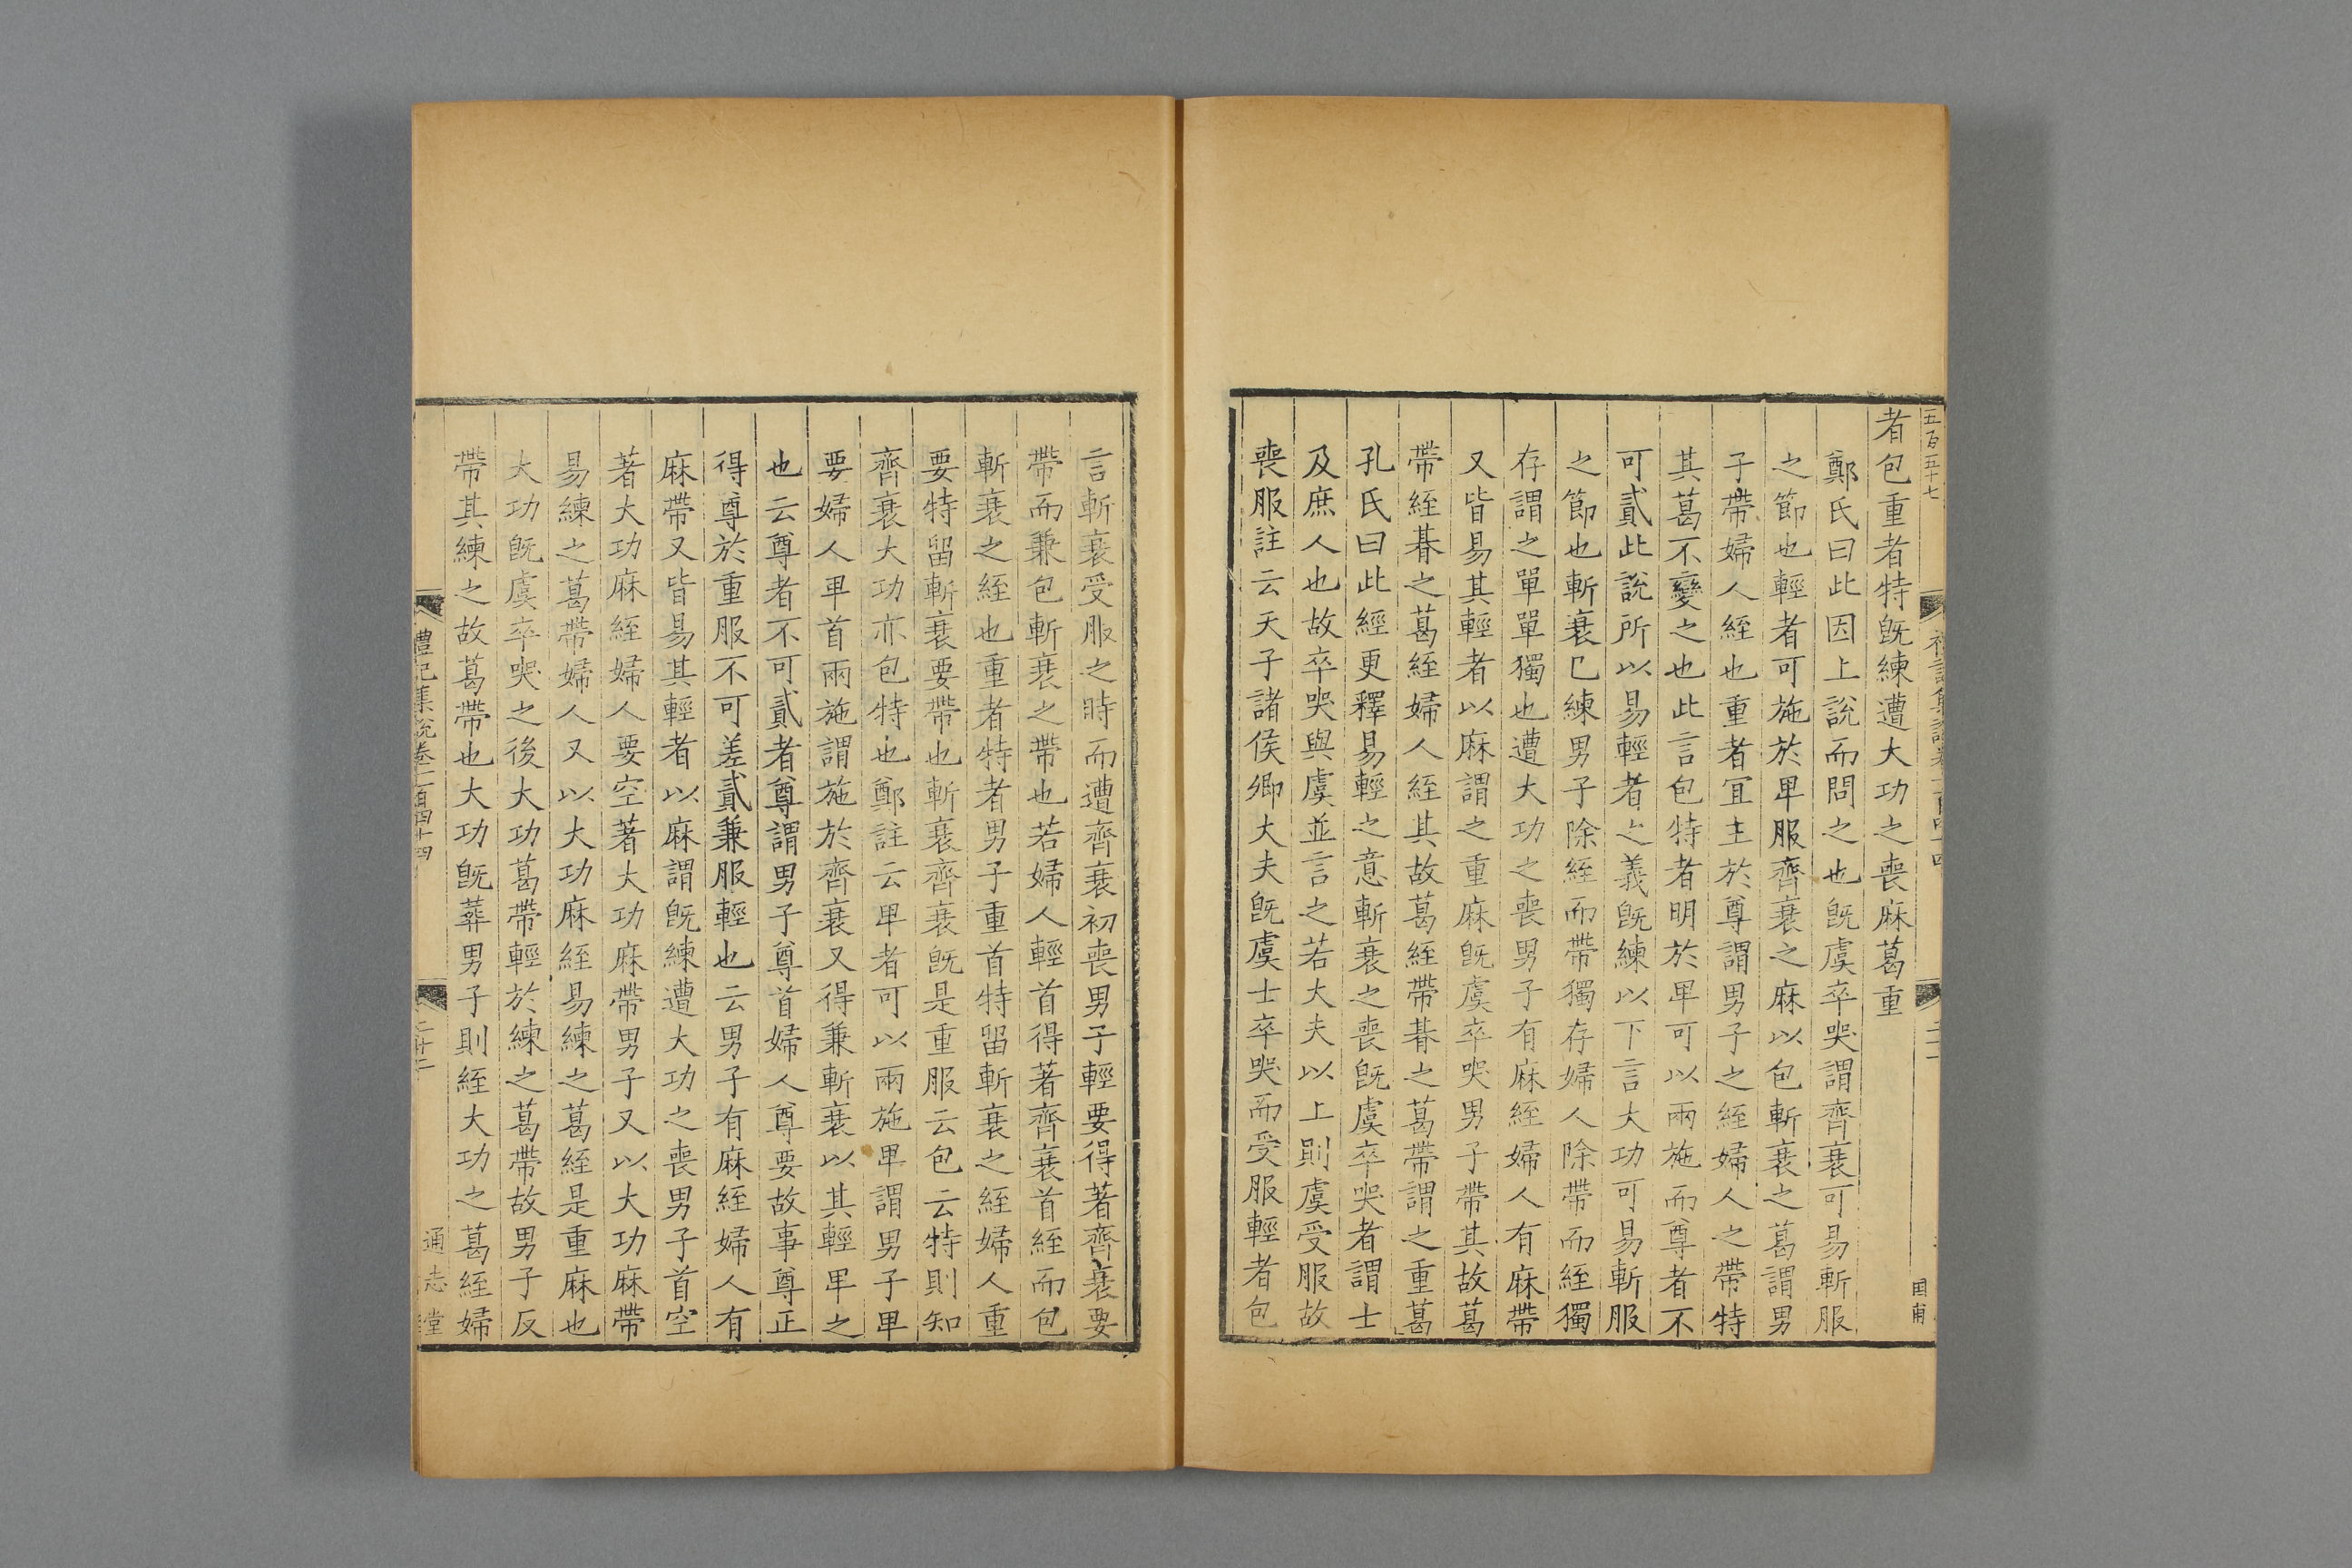 五百五十七
者包重者特旣練遭大功之喪麻葛重
鄭氏曰此因上說而問之也旣虞卒哭謂齊衰可易斬服
之節也輕者可施於卑服齊衰之麻以包斬衰之葛謂男
子帶婦人絰也重者宜主於尊謂男子之絰婦人之帶特
其葛不變之也此言包特者明於卑可以兩施而尊者不
可貳此說所以易輕者之義旣練以下言大功可易斬服
之節也斬衰已練男子除絰而帶獨存婦人除帶而絰獨
存謂之單單獨也遭大功之喪男子有麻絰婦人有麻帶
又皆易其輕者以麻謂之重麻旣虞卒哭男子帶其故葛
帶絰朞之葛絰婦人絰其故葛絰帶朞之葛帶謂之重葛
孔氏曰此經更釋易輕之意斬衰之喪旣虞卒哭者謂士
及庶人也故卒哭與虞並言之若大夫以上則虞受服故
喪服註云天子諸侯卿大夫旣虞士卒哭而受服輕者包
言斬衰受服之時而遭齊衰初喪男子輕要得著齊衰要
帶而兼包斬衰之帶也若婦人輕首得著齊衰首絰而包
斬衰之絰也重者特者男子重首特留斬衰之絰婦人重
要特留斬衰要帶也斬衰齊衰旣是重服云包云特則知
齊衰大功亦包特也鄭註云卑者可以兩施卑謂男子卑
要婦人卑首兩施謂施於齊衰又得兼斬衰以其輕卑之
也云尊者不可貳者尊謂男子尊首婦人尊要故事尊正
得尊於重服不可差貳兼服輕也云男子有麻絰婦人有
麻帶又皆易其輕者以麻謂旣練遭大功之喪男子首空
著大功麻絰婦人要空著大功麻帶男子又以大功麻帶
易練之葛帶婦人又以大功麻絰易練之葛絰是重麻也
大功旣虞卒哭之後大功葛帶輕於練之葛帶故男子反
帶其練之故葛帶也大功旣葬男子則絰大功之葛絰婦
禮記集說卷一百四十四
通志堂